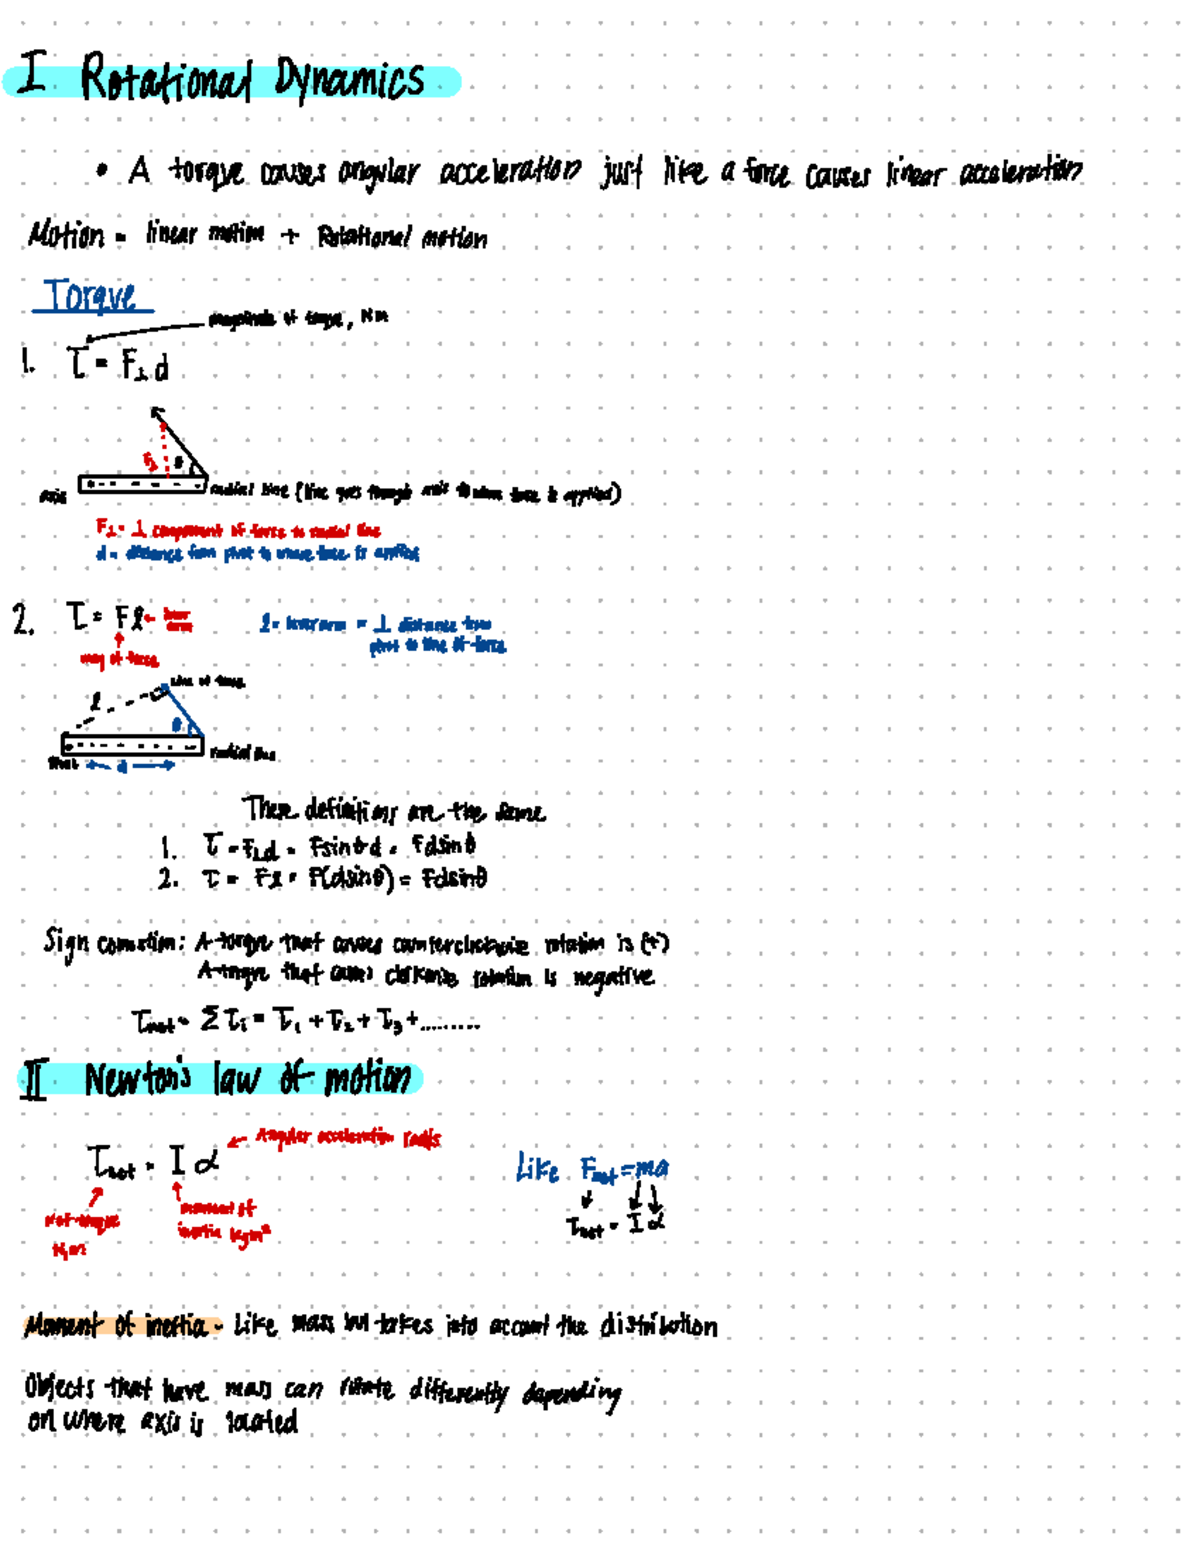 I Rotational Dynamics
• A torque causes angular acceleration just like a force causes linear acceleration
Motion = linear motion + Rotational motion
Torque
magnitude of torque, Nm
1. τ = F⊥d
F⊥ θ
axis
radial line (line goes through axis to where force is applied)
F⊥ = ⊥ component of force to radial line
d = distance from pivot to where force is applied
2. τ = Fl ← lever arm
l = lever arm = ⊥ distance from
pivot to line of force
mag of force
line of force
l
θ
radial line
pivot d
These definitions are the same
1. τ = F⊥d = Fsinθd = Fdsinθ
2. τ = Fl = F(dsinθ) = Fdsinθ
Sign convention: A torque that causes counterclockwise rotation is (+)
A torque that causes clockwise rotation is negative
τnet = Στi = τ₁ + τ₂ + τ₃ + .........
II Newton's law of motion
← Angular acceleration rad/s
τnet = Iα
Like Fnet = ma
τnet = Iα
Net torque
N·m
moment of
inertia kgm²
Moment of inertia - Like mass but takes into account the distribution
Objects that have mass can rotate differently depending
on where axis is located